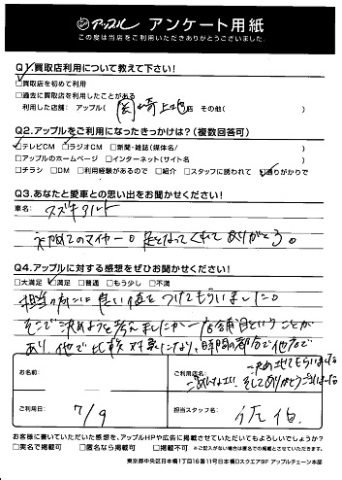 アップル アンケート用紙
この度は当店をご利用いただきありがとうございました。
Q1.買取店利用について教えて下さい!
□買取店を初めて利用
□過去に買取店を利用したことがある
利用した店舗: アップル( 店 その他( )
Q2.アップルをご利用になったきっかけは?(複数回答可)
□テレビCM □ラジオCM □新聞・雑誌(媒体名/ )
□アップルのホームページ □インターネット(サイト名 )
□チラシ □DM □利用経験があるので □紹介 □スタッフに誘われて □通りがかりで
Q3.あなたと愛車との思い出をお聞かせください!
車名: スズキアルト
初めてのマイカー。足となってくれてありがとう。
Q4.アップルに対する感想をぜひお聞かせください!
□大満足 □満足 □普通 □もう少し □不満
担当の方には良い値をつけてもらいました。
そこで決めようと考えましたが一店舗目ということが
あり、他で比較対象になり、時間の都合で他店で
決めさせてもらいました
ごめんなさい。そしてありがとうございました
お名前:
ご利用店名:
ご利用日: 7/9
担当スタッフ名: 佐伯
お客様に書いていただいた感想を、アップルHPや広告に掲載させていただいてもよろしいでしょうか?
□実名で掲載可 □匿名なら掲載可 □掲載不可 ※ご記入がない場合は匿名での掲載とさせていただきます。
東京都中央区日本橋1丁目16番11号日本橋Dスクエア8F アップルチェーン本部